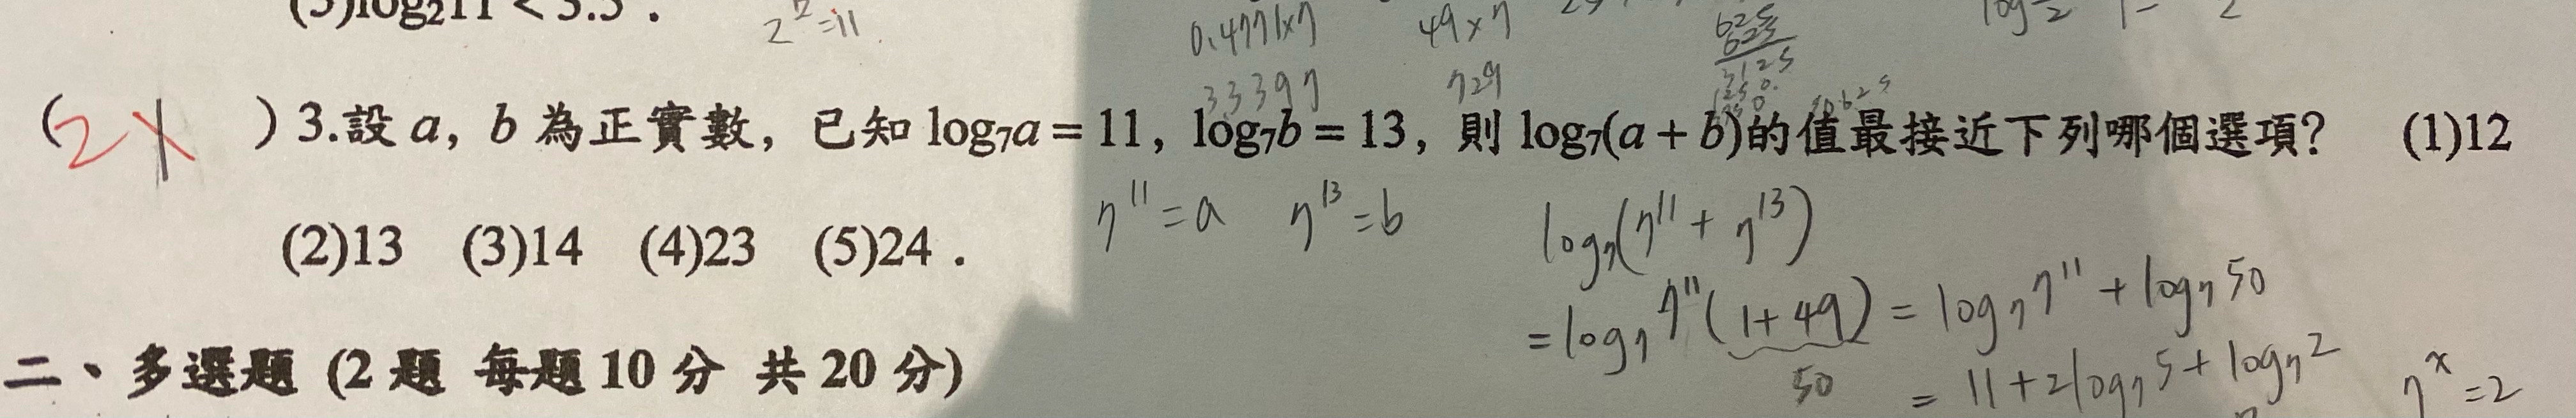 (5)log₂11 < 3.5 .
2^x=11
0.4771×7
3.3397
49×7
729
625
625
3125
( 2 ) 3.設 a, b 為正實數, 已知 log₇a = 11, log₇b = 13, 則 log₇(a + b)的值最接近下列哪個選項? (1)12
(2)13 (3)14 (4)23 (5)24 .
7¹¹ = a 7¹³ = b
log₇(7¹¹ + 7¹³)
= log₇ 7¹¹(1 + 49) = log₇ 7¹¹ + log₇ 50
50
= 11 + 2log₇5 + log₇2
7^x = 2
二、多選題 (2 題 每題 10 分 共 20 分)